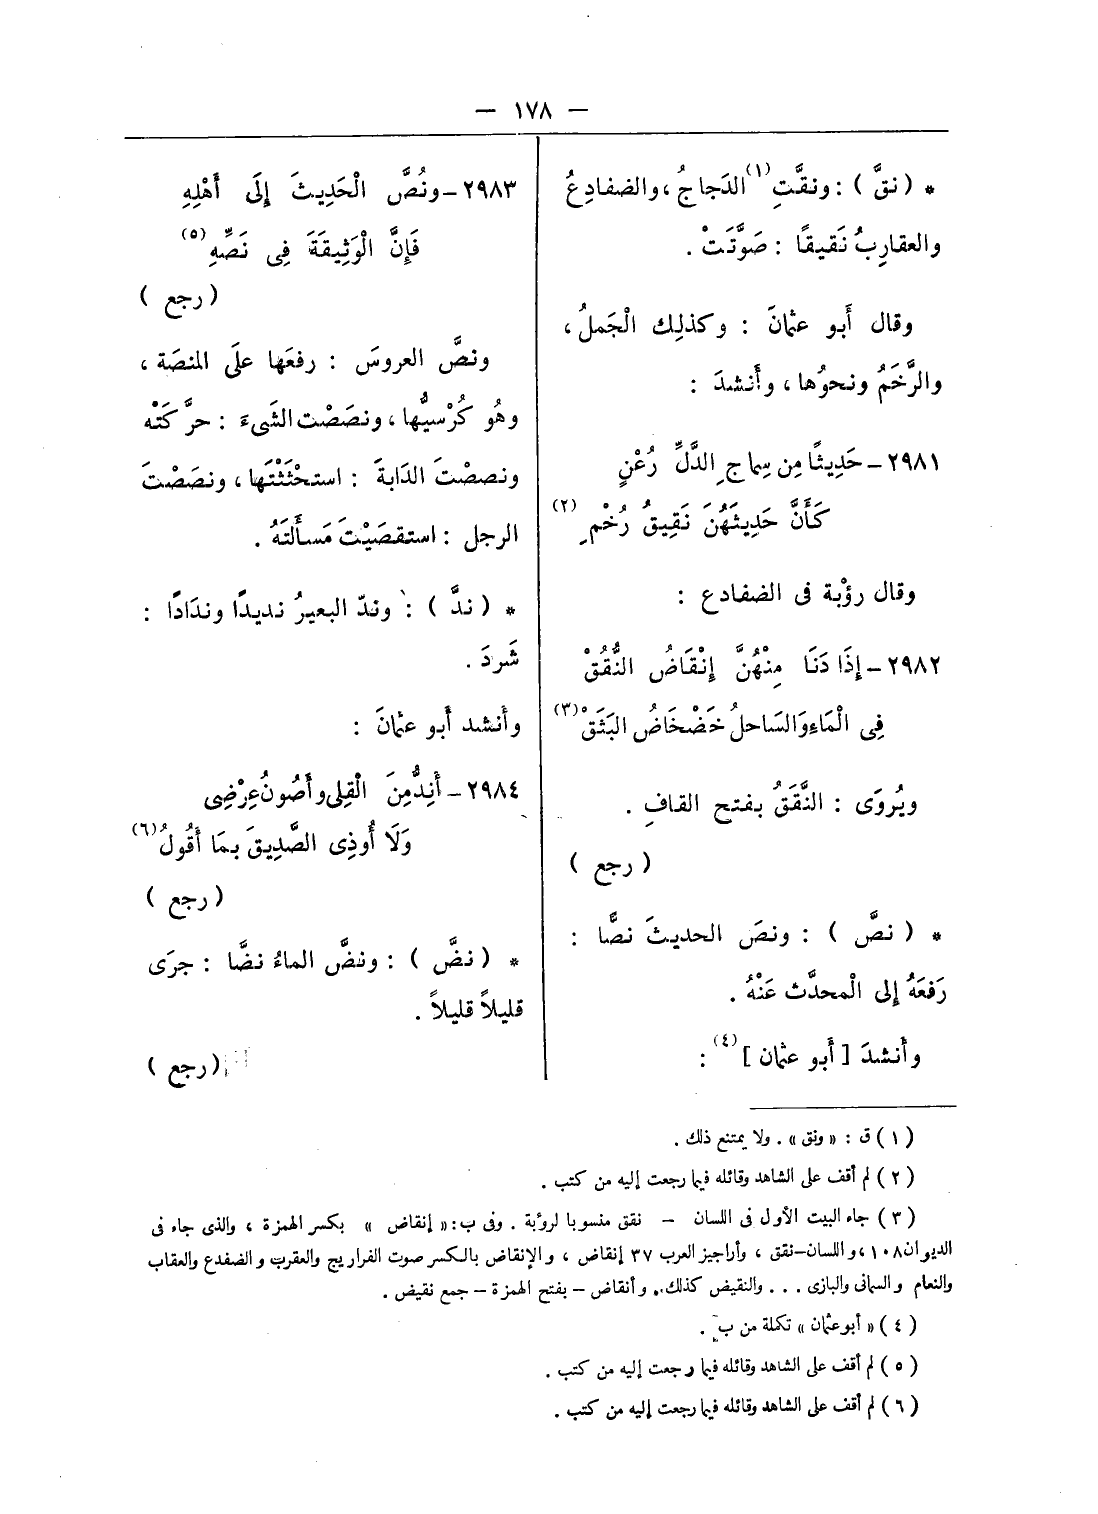 — ١٧٨ —
* ( نقَّ ) : ونقَّتِ(١) الدَجاجُ ، والضفادِعُ
والعقارِبُ نَقيقًا : صَوَّتَتْ .
وقال أَبو عثمانَ : وكذلِك الْجَملُ ،
والرَّخَمُ ونحوُها ، وأَنشدَ :
٢٩٨١ – حَدِيثًا مِن سِماجِ الدَّلِّ رُعْنٍ
كَأَنَّ حَدِيثَهُنَ نَقِيقُ رُخْمِ (٢)
وقال رؤْبة فى الضفادع :
٢٩٨٢ – إِذَا دَنَا مِنْهُنَّ إِنْقَاضُ النُّقُقْ
فِى الْمَاءِ وَالسَاحلُ خَضْخَاضُ البَثَقْ (٣)
ويُروَى : النَّقَقُ بفتح القافِ .
( رجع )
* ( نصَّ ) : ونصَ الحديثَ نصًّا :
رَفعَهُ إِلى الْمحدَّث عَنْهُ .
وأَنشدَ [ أَبو عثمان ] (٤) :
٢٩٨٣ – ونُصَّ الْحَدِيثَ إِلَى أَهْلِهِ
فَإِنَّ الْوَثِيقَةَ فِى نَصِّهِ (٥)
( رجع )
ونصَّ العروسَ : رفعَها علَى المنصَة ،
وهُو كُرْسيُّها ، ونصَصْت الشَىءَ : حرَّكتْه
ونصصْتَ الدَابةَ : استحْثَثْتَها ، ونصَصْتَ
الرجل : استقصَيْتَ مَسأَلتَهُ .
* ( ندَّ ) : وندّ البعيرُ نديدًا وندَادًا :
شَردَ .
وأَنشد أَبو عثمانَ :
٢٩٨٤ – أَنِدُّ مِنَ الْقِلى وأَصُونُ عِرْضِى
وَلَا أُوذِى الصَّدِيقَ بمَا أَقُولُ (٦)
( رجع )
* ( نضَّ ) : ونضَّ الماءُ نضًّا : جرَى
قليلاً قليلاً .
( رجع )
( ١ ) ق : « ونق » . ولا يمتنع ذلك .
( ٢ ) لم أقف على الشاهد وقائله فيما رجعت إليه من كتب .
( ٣ ) جاء البيت الأول فى اللسان – نقق منسوبا لرؤبة . وفى ب : « إنقاض » بكسر الهمزة ، والذى جاء فى
الديوان ١٠٨ ، و اللسان – نقق ، وأراجيز العرب ٣٧ إنقاض ، والإنقاض بالكسر صوت الفراريج والعقرب و الضفدع والعقاب
والنعام و السمانى والبازى . . . والنقيض كذلك . وأنقاض – بفتح الهمزة – جمع نقيض .
( ٤ ) « أبو عثمان » تكملة من ب .
( ٥ ) لم أقف على الشاهد وقائله فيما رجعت إليه من كتب .
( ٦ ) لم أقف على الشاهد وقائله فيما رجعت إليه من كتب .